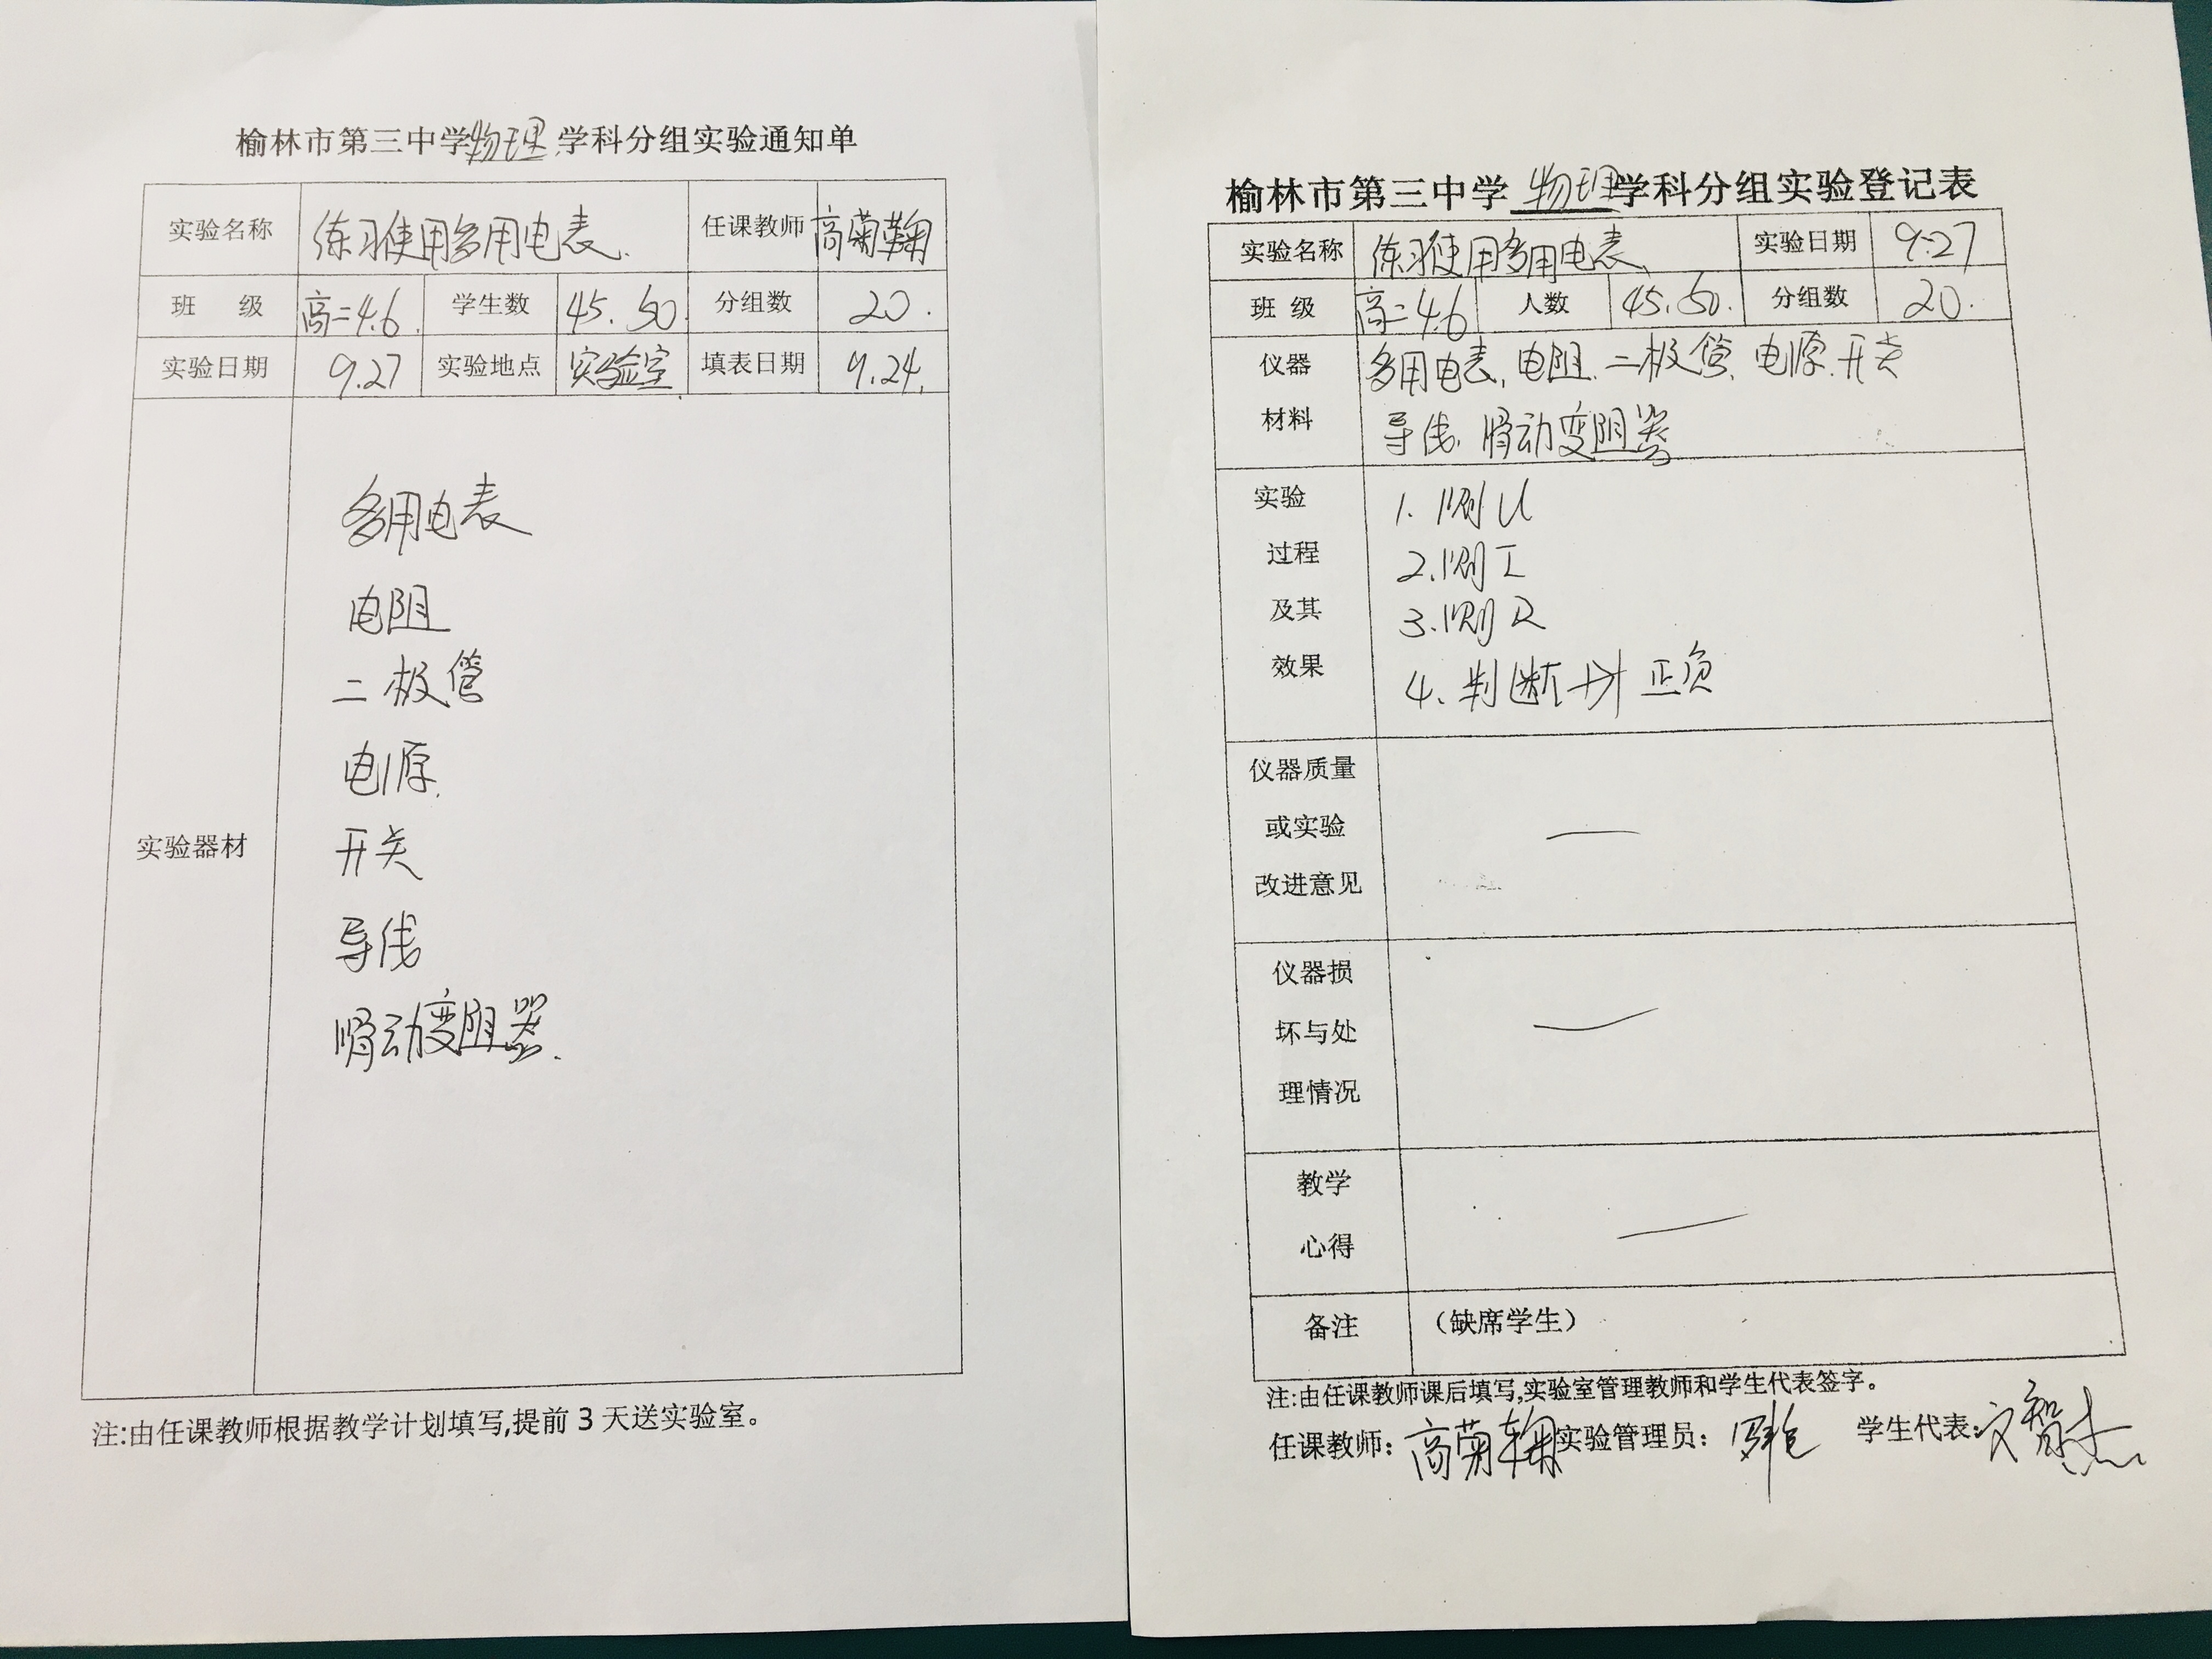 榆林市第三中学物理学科分组实验通知单
实验名称 练习使用多用电表. 任课教师 高菊鞠
班 级 高二4.6. 学生数 45. 50. 分组数 20.
实验日期 9.27 实验地点 实验室 填表日期 9.24.
实验器材
多用电表
电阻
二极管
电源.
开关
导线
滑动变阻器.
注:由任课教师根据教学计划填写,提前3天送实验室。
榆林市第三中学物理学科分组实验登记表
实验名称 练习使用多用电表、 实验日期 9.27
班 级 高二4.6 人数 45.50. 分组数 20.
仪器 多用电表, 电阻. 二极管. 电源. 开关
材料 导线. 滑动变阻器
实验 1. 测U
过程 2. 测I
及其 3. 测R
效果 4. 判断 正负
仪器质量
或实验
改进意见
仪器损
坏与处
理情况
教学
心得
备注 （缺席学生）
注:由任课教师课后填写,实验室管理教师和学生代表签字。
任课教师: 高菊鞠 实验管理员: 学生代表: 文智杰